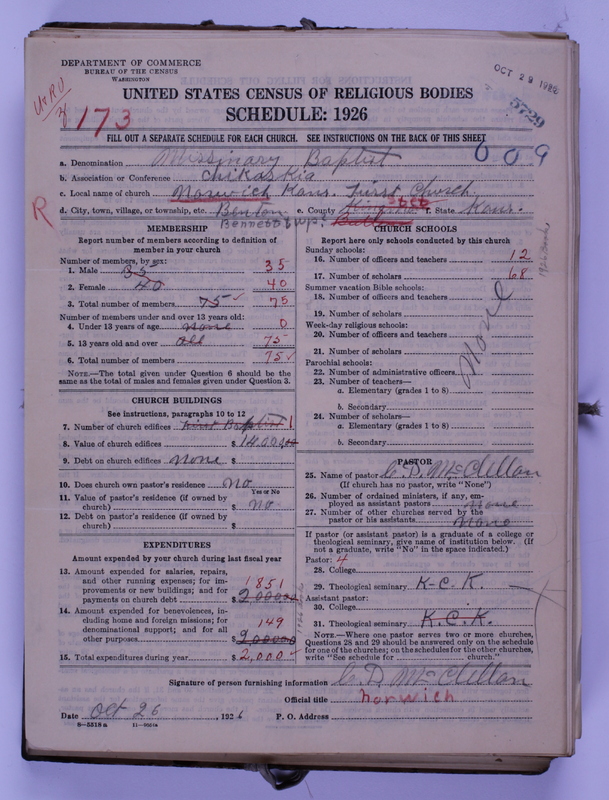 DEPARTMENT OF COMMERCE
BUREAU OF THE CENSUS
WASHINGTON
OCT 29 1926
UNITED STATES CENSUS OF RELIGIOUS BODIES
SCHEDULE: 1926
173
5729
FILL OUT A SEPARATE SCHEDULE FOR EACH CHURCH. SEE INSTRUCTIONS ON THE BACK OF THIS SHEET
609
a. Denomination Missinary Baptist
b. Association or Conference Chikaskia
c. Local name of church Norwich Kans. First Church
R
d. City, town, village, or township, etc. Benton e. County Kingman f. State Kans.
Bennett twp.
MEMBERSHIP
Report number of members according to definition of member in your church
Number of members, by sex:
1. Male 35 35
2. Female 40 40
3. Total number of members 75 75
Number of members under and over 13 years old:
4. Under 13 years of age none 0
5. 13 years old and over all 75
6. Total number of members 75
NOTE.—The total given under Question 6 should be the same as the total of males and females given under Question 3.
CHURCH BUILDINGS
See instructions, paragraphs 10 to 12
7. Number of church edifices First Baptist 1
8. Value of church edifices $ 14000
9. Debt on church edifices none $
10. Does church own pastor's residence no
Yes or No
11. Value of pastor's residence (if owned by church) $ no
12. Debt on pastor's residence (if owned by church) $
EXPENDITURES
Amount expended by your church during last fiscal year
13. Amount expended for salaries, repairs, and other running expenses; for improvements or new buildings; and for payments on church debt $ 1851
14. Amount expended for benevolences, including home and foreign missions; for denominational support; and for all other purposes $ 149
15. Total expenditures during year $ 2,000
CHURCH SCHOOLS
Report here only schools conducted by this church
Sunday schools:
16. Number of officers and teachers 12
17. Number of scholars 68
Summer vacation Bible schools:
18. Number of officers and teachers
19. Number of scholars
Week-day religious schools:
20. Number of officers and teachers
21. Number of scholars
Parochial schools:
22. Number of administrative officers
23. Number of teachers—
a. Elementary (grades 1 to 8)
b. Secondary
24. Number of scholars—
a. Elementary (grades 1 to 8)
b. Secondary
None
PASTOR
25. Name of pastor C. D. McClellan
(If church has no pastor, write "None")
26. Number of ordained ministers, if any, employed as assistant pastors None
27. Number of other churches served by the pastor or his assistants None
If pastor (or assistant pastor) is a graduate of a college or theological seminary, give name of institution below. (If not a graduate, write "No" in the space indicated.)
Pastor:
28. College
29. Theological seminary K-C-K.
Assistant pastor:
30. College
31. Theological seminary K.C.K.
NOTE.—Where one pastor serves two or more churches, Questions 28 and 29 should be answered only on the schedule for one of the churches; on the schedules for the other churches, write "See schedule for church."
Signature of person furnishing information C. D. McClellan
Official title Norwich
Date Oct 26, 1926 P. O. Address
8—5518a 11—9561a